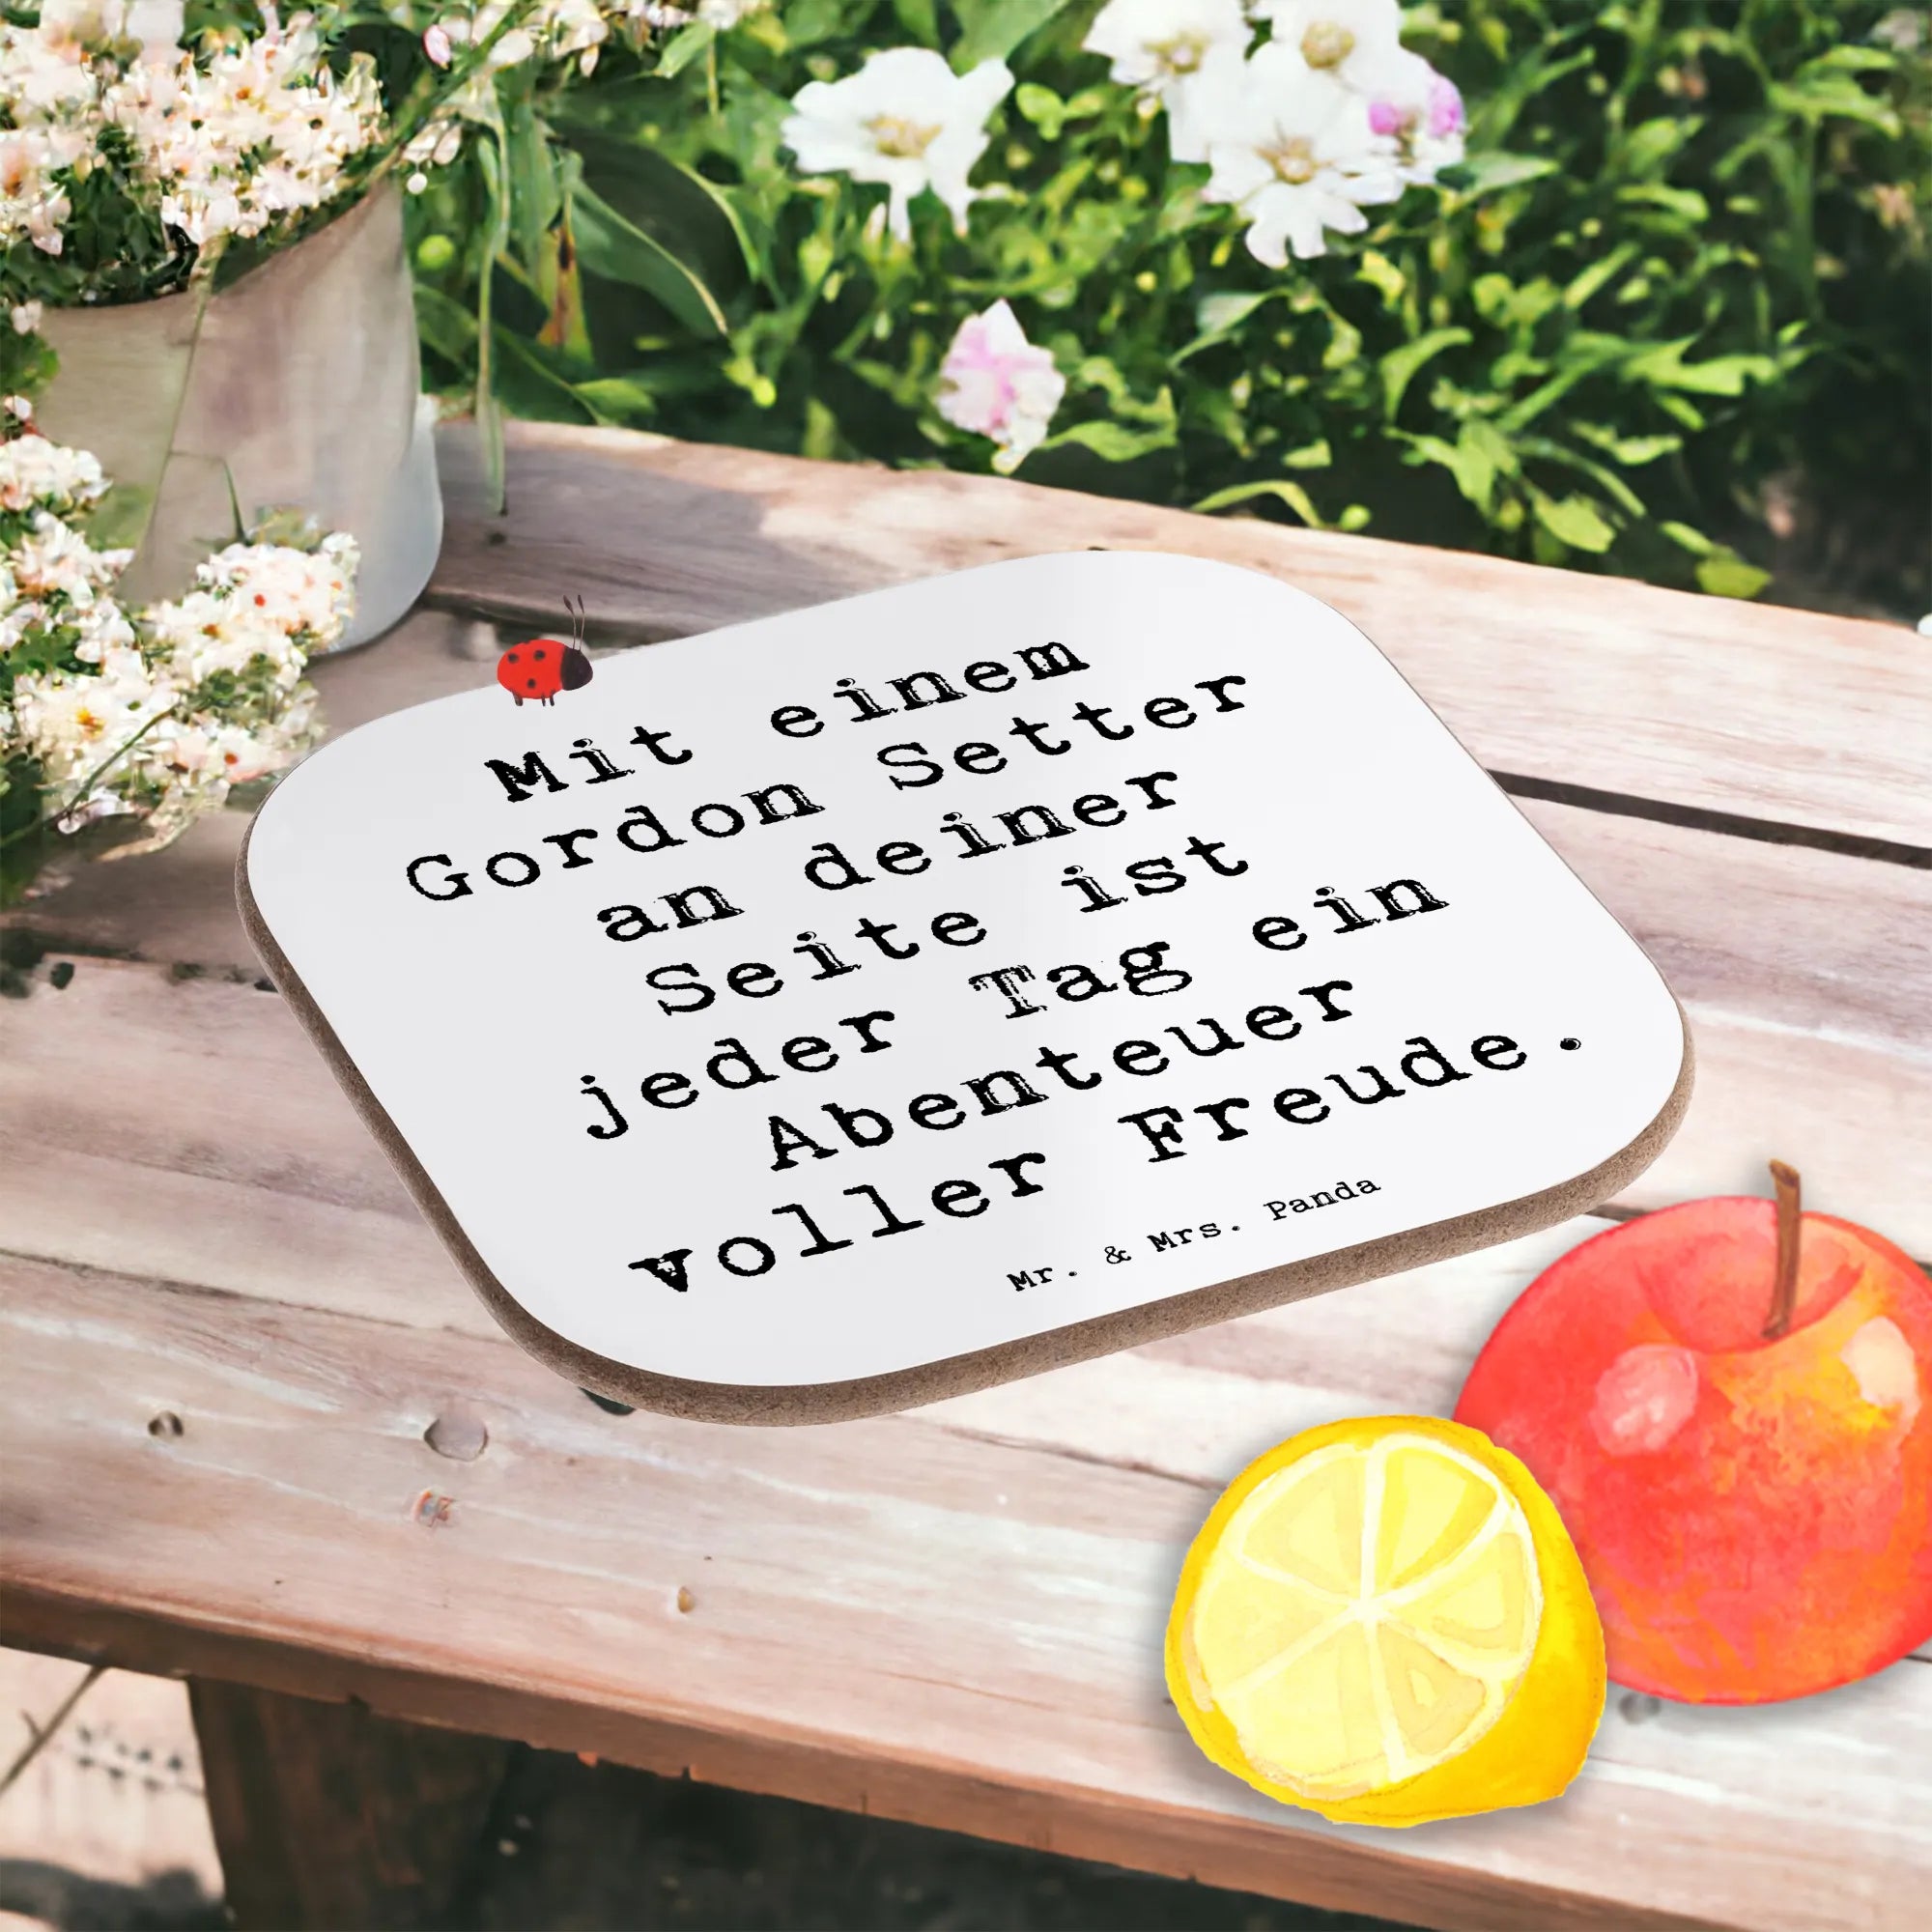 Mit einem
Gordon Setter
an deiner
Seite ist
jeder Tag ein
Abenteuer
voller Freude.
Mr. & Mrs. Panda